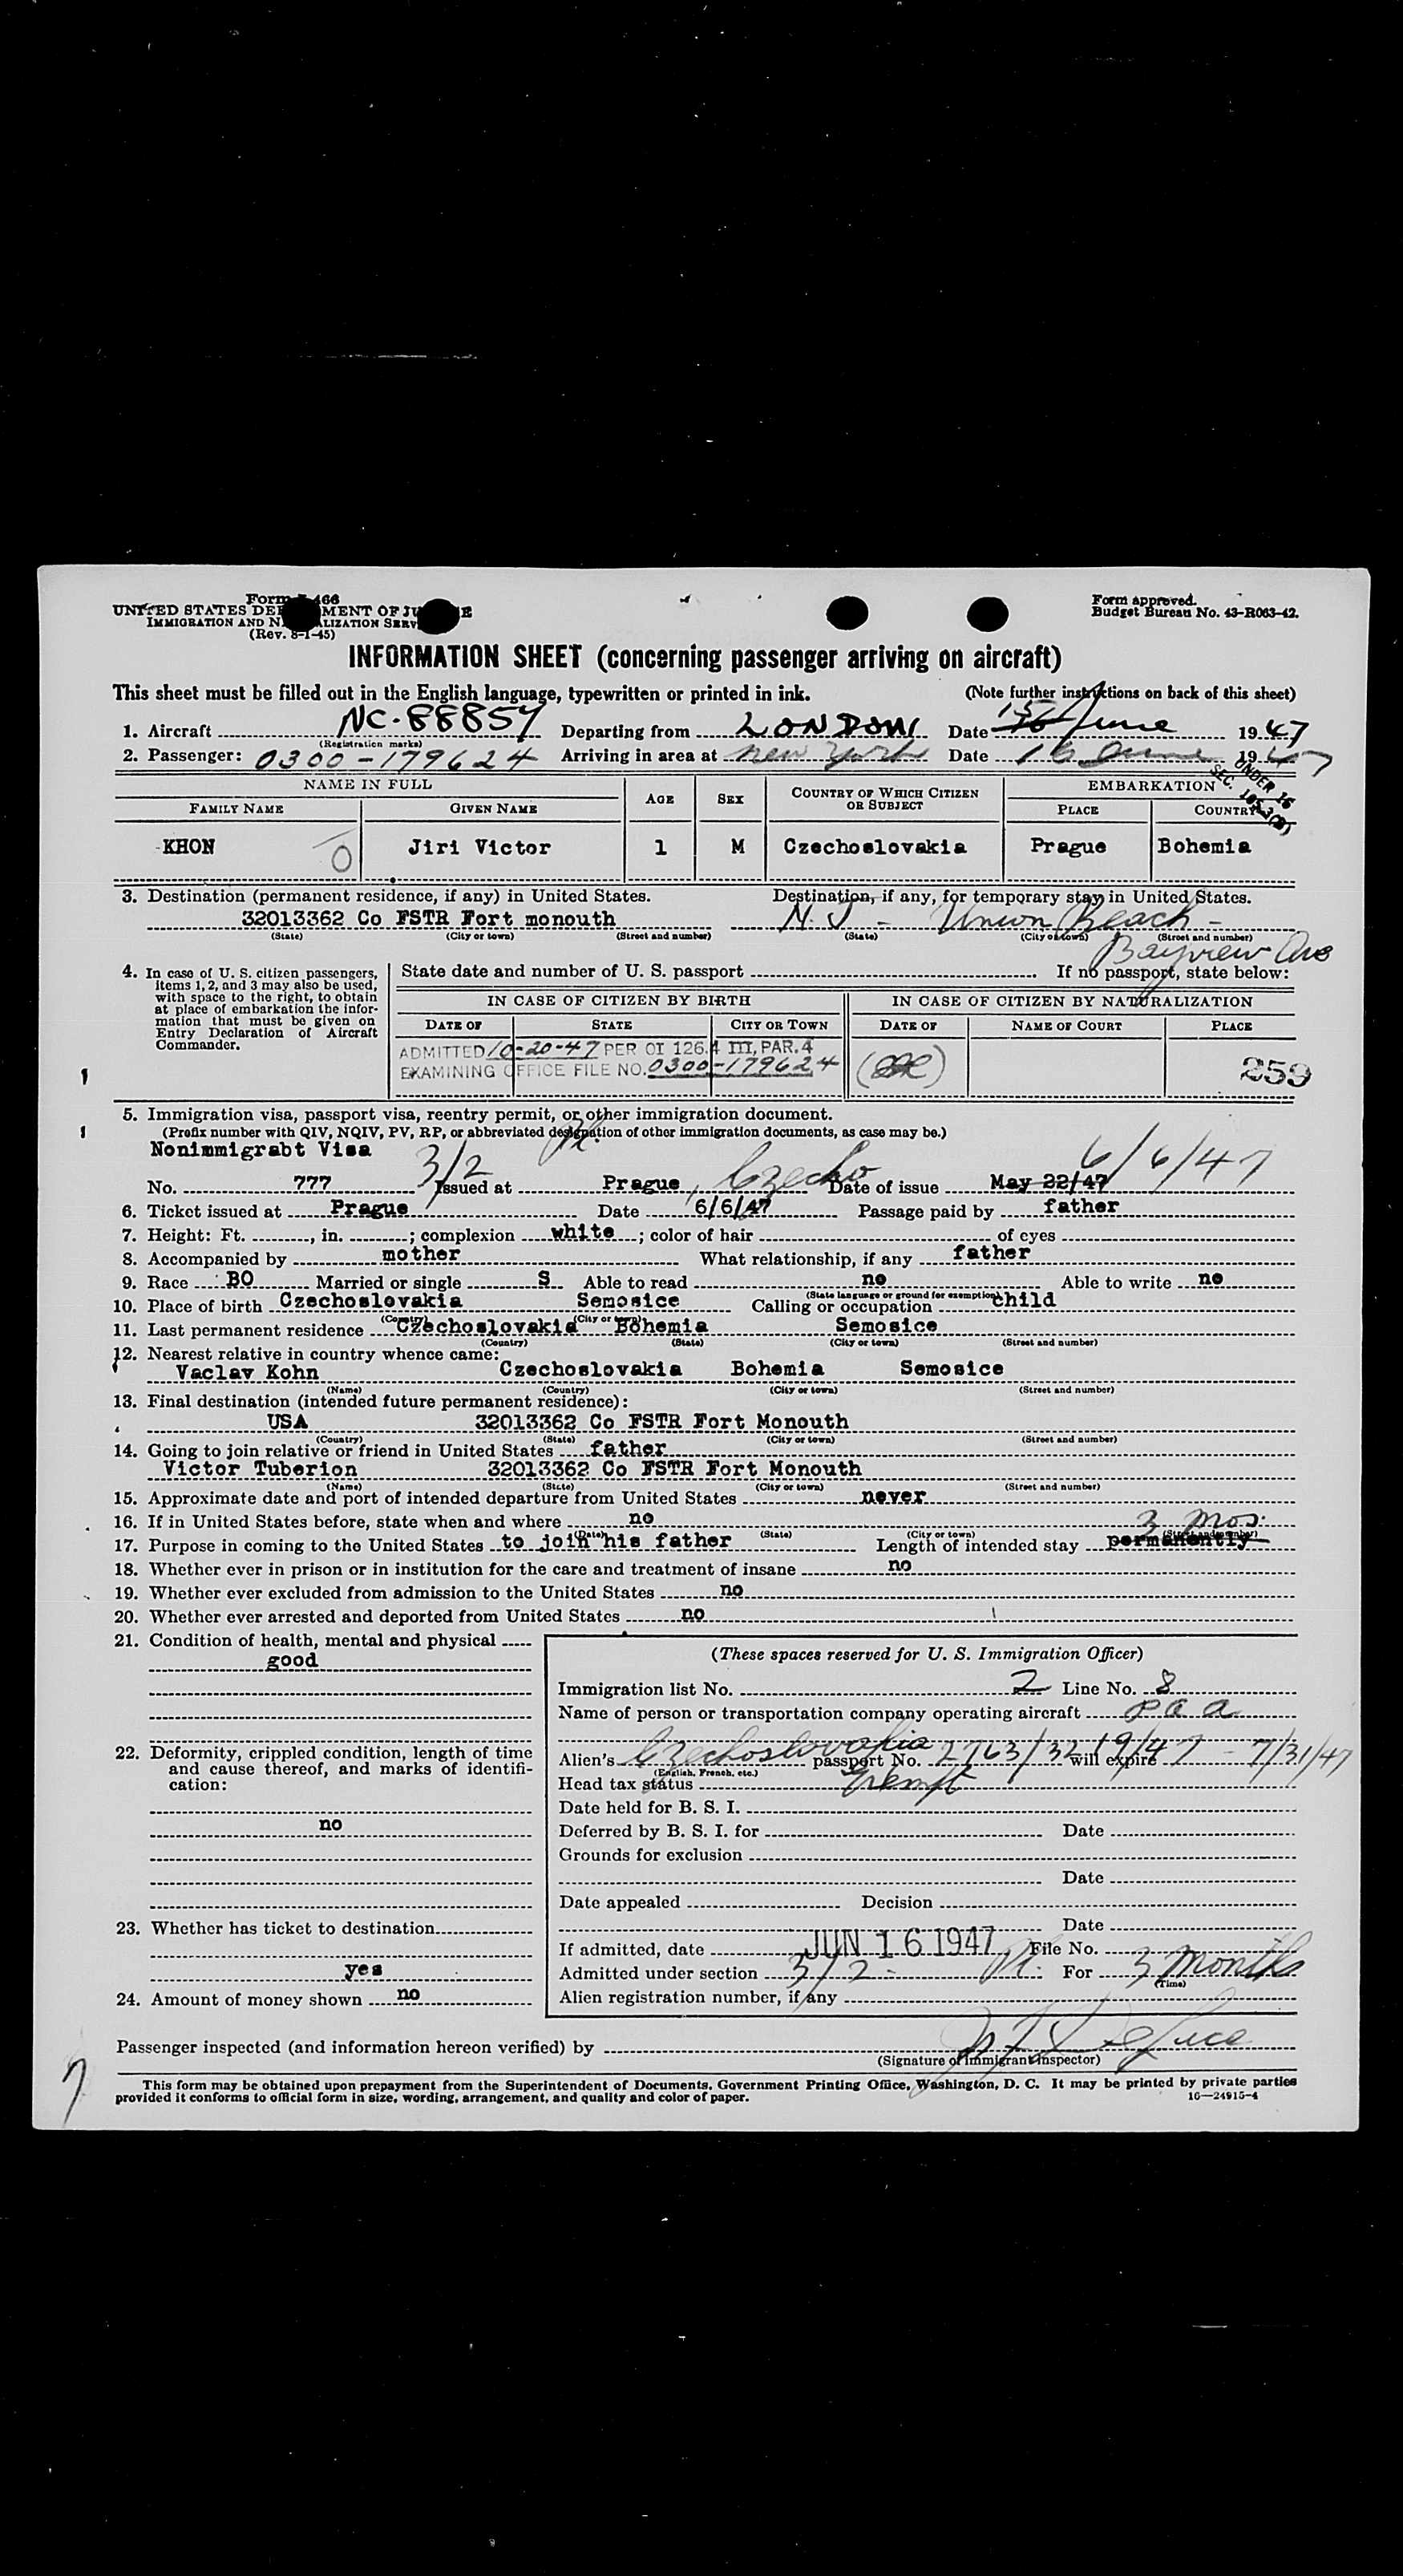 Form I-466
UNITED STATES DEPARTMENT OF JUSTICE
IMMIGRATION AND NATURALIZATION SERVICE
(Rev. 8-1-45)
Form approved.
Budget Bureau No. 43-R063-42.
INFORMATION SHEET (concerning passenger arriving on aircraft)
This sheet must be filled out in the English language, typewritten or printed in ink. (Note further instructions on back of this sheet)
1. Aircraft NC-88857 Departing from LONDON Date 15 June 1947
(Registration marks)
2. Passenger: 0300-179624 Arriving in area at New York Date 16 June 1947
UNDER 16
SEC.
NAME IN FULL AGE SEX COUNTRY OF WHICH CITIZEN OR SUBJECT EMBARKATION
FAMILY NAME GIVEN NAME PLACE COUNTRY
KHON Jiri Victor 1 M Czechoslovakia Prague Bohemia
3. Destination (permanent residence, if any) in United States. Destination, if any, for temporary stay in United States.
32013362 Co FSTR Fort monouth N. J - Union Beach -
(State) (City or town) (Street and number) (State) (City or town) (Street and number)
Bayview Ave
4. In case of U. S. citizen passengers, items 1, 2, and 3 may also be used, with space to the right, to obtain at place of embarkation the information that must be given on Entry Declaration of Aircraft Commander.
State date and number of U. S. passport If no passport, state below:
IN CASE OF CITIZEN BY BIRTH IN CASE OF CITIZEN BY NATURALIZATION
DATE OF STATE CITY OR TOWN DATE OF NAME OF COURT PLACE
ADMITTED 10-20-47 PER OI 126.4 III, PAR. 4
EXAMINING OFFICE FILE NO. 0300-179624
259
5. Immigration visa, passport visa, reentry permit, or other immigration document.
(Prefix number with QIV, NQIV, PV, RP, or abbreviated designation of other immigration documents, as case may be.)
Nonimmigrabt Visa 3/2 6/6/47
No. 777 Issued at Prague, Czecho Date of issue May 22/47
6. Ticket issued at Prague Date 6/6/47 Passage paid by father
7. Height: Ft. , in. ; complexion white ; color of hair of eyes
8. Accompanied by mother What relationship, if any father
9. Race BO Married or single S Able to read no Able to write no
(State language or ground for exemption)
10. Place of birth Czechoslovakia Semosice Calling or occupation child
(Country) (City or town)
11. Last permanent residence Czechoslovakia Bohemia Semosice
(Country) (State) (City or town) (Street and number)
12. Nearest relative in country whence came:
Vaclav Kohn Czechoslovakia Bohemia Semosice
(Name) (Country) (City or town) (Street and number)
13. Final destination (intended future permanent residence):
USA 32013362 Co FSTR Fort Monouth
(Country) (State) (City or town) (Street and number)
14. Going to join relative or friend in United States father
Victor Tuberion 32013362 Co FSTR Fort Monouth
(Name) (State) (City or town) (Street and number)
15. Approximate date and port of intended departure from United States never
16. If in United States before, state when and where no
(Date) (State) (City or town) (Street and number)
3 mos.
17. Purpose in coming to the United States to join his father Length of intended stay permanently
18. Whether ever in prison or in institution for the care and treatment of insane no
19. Whether ever excluded from admission to the United States no
20. Whether ever arrested and deported from United States no
21. Condition of health, mental and physical
good
22. Deformity, crippled condition, length of time and cause thereof, and marks of identification:
no
23. Whether has ticket to destination
yes
24. Amount of money shown no
(These spaces reserved for U. S. Immigration Officer)
Immigration list No. 2 Line No. 8
Name of person or transportation company operating aircraft P a a
Alien's Czechoslovakia passport No. 2763/3219/47 will expire - 7/31/47
(English, French, etc.)
Head tax status Exempt
Date held for B. S. I.
Deferred by B. S. I. for Date
Grounds for exclusion
Date
Date appealed Decision
Date
If admitted, date JUN 16 1947 File No.
Admitted under section 3/2 - For 3 Months
(Time)
Alien registration number, if any
Passenger inspected (and information hereon verified) by
(Signature of Immigrant Inspector)
This form may be obtained upon prepayment from the Superintendent of Documents, Government Printing Office, Washington, D. C. It may be printed by private parties
provided it conforms to official form in size, wording, arrangement, and quality and color of paper. 16—24915-4